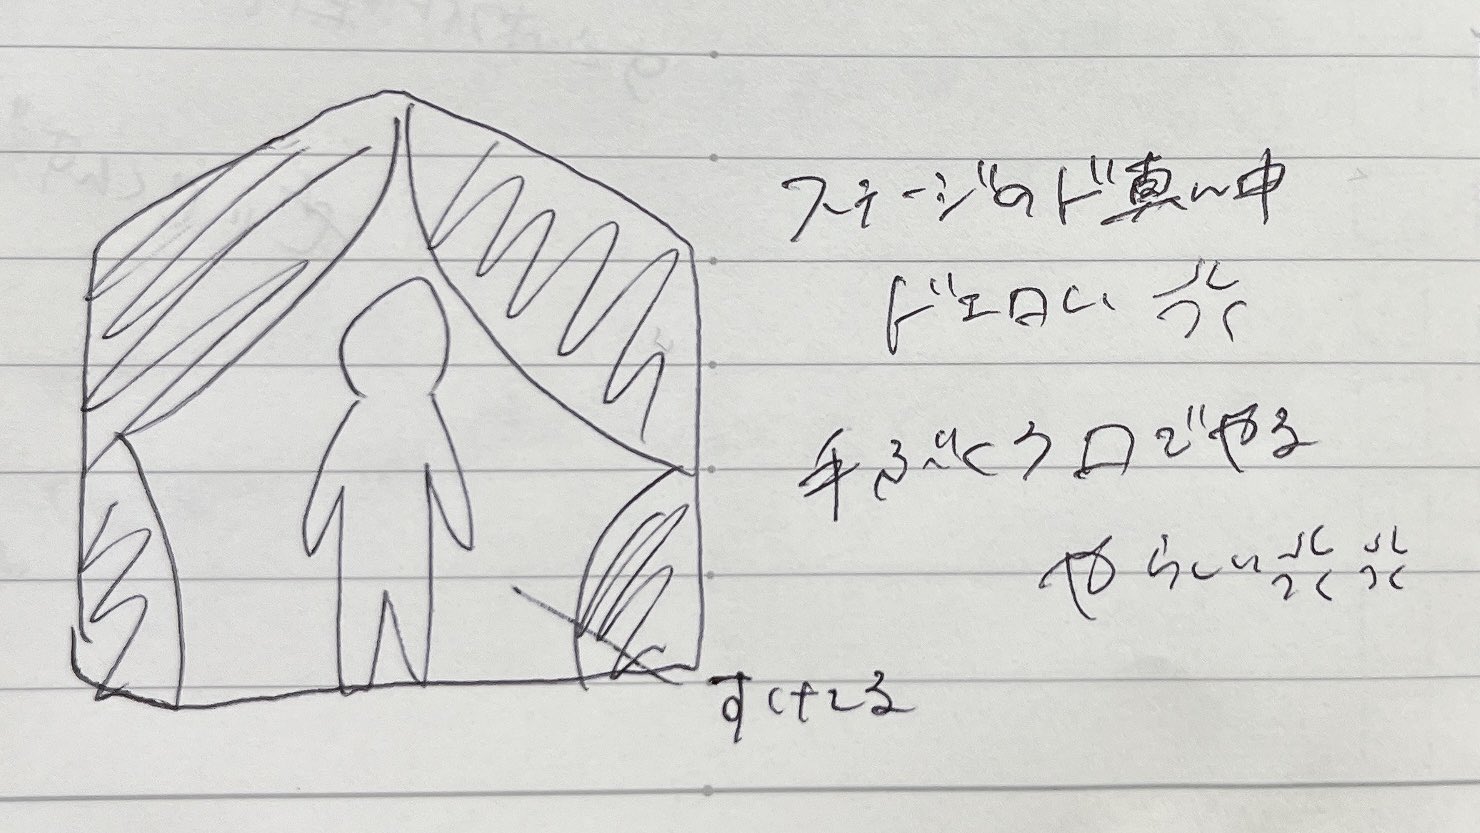 ステージのド真ん中
ドエロい💢
手ぶくろ口でやる
やらしい💢💢
すけてる